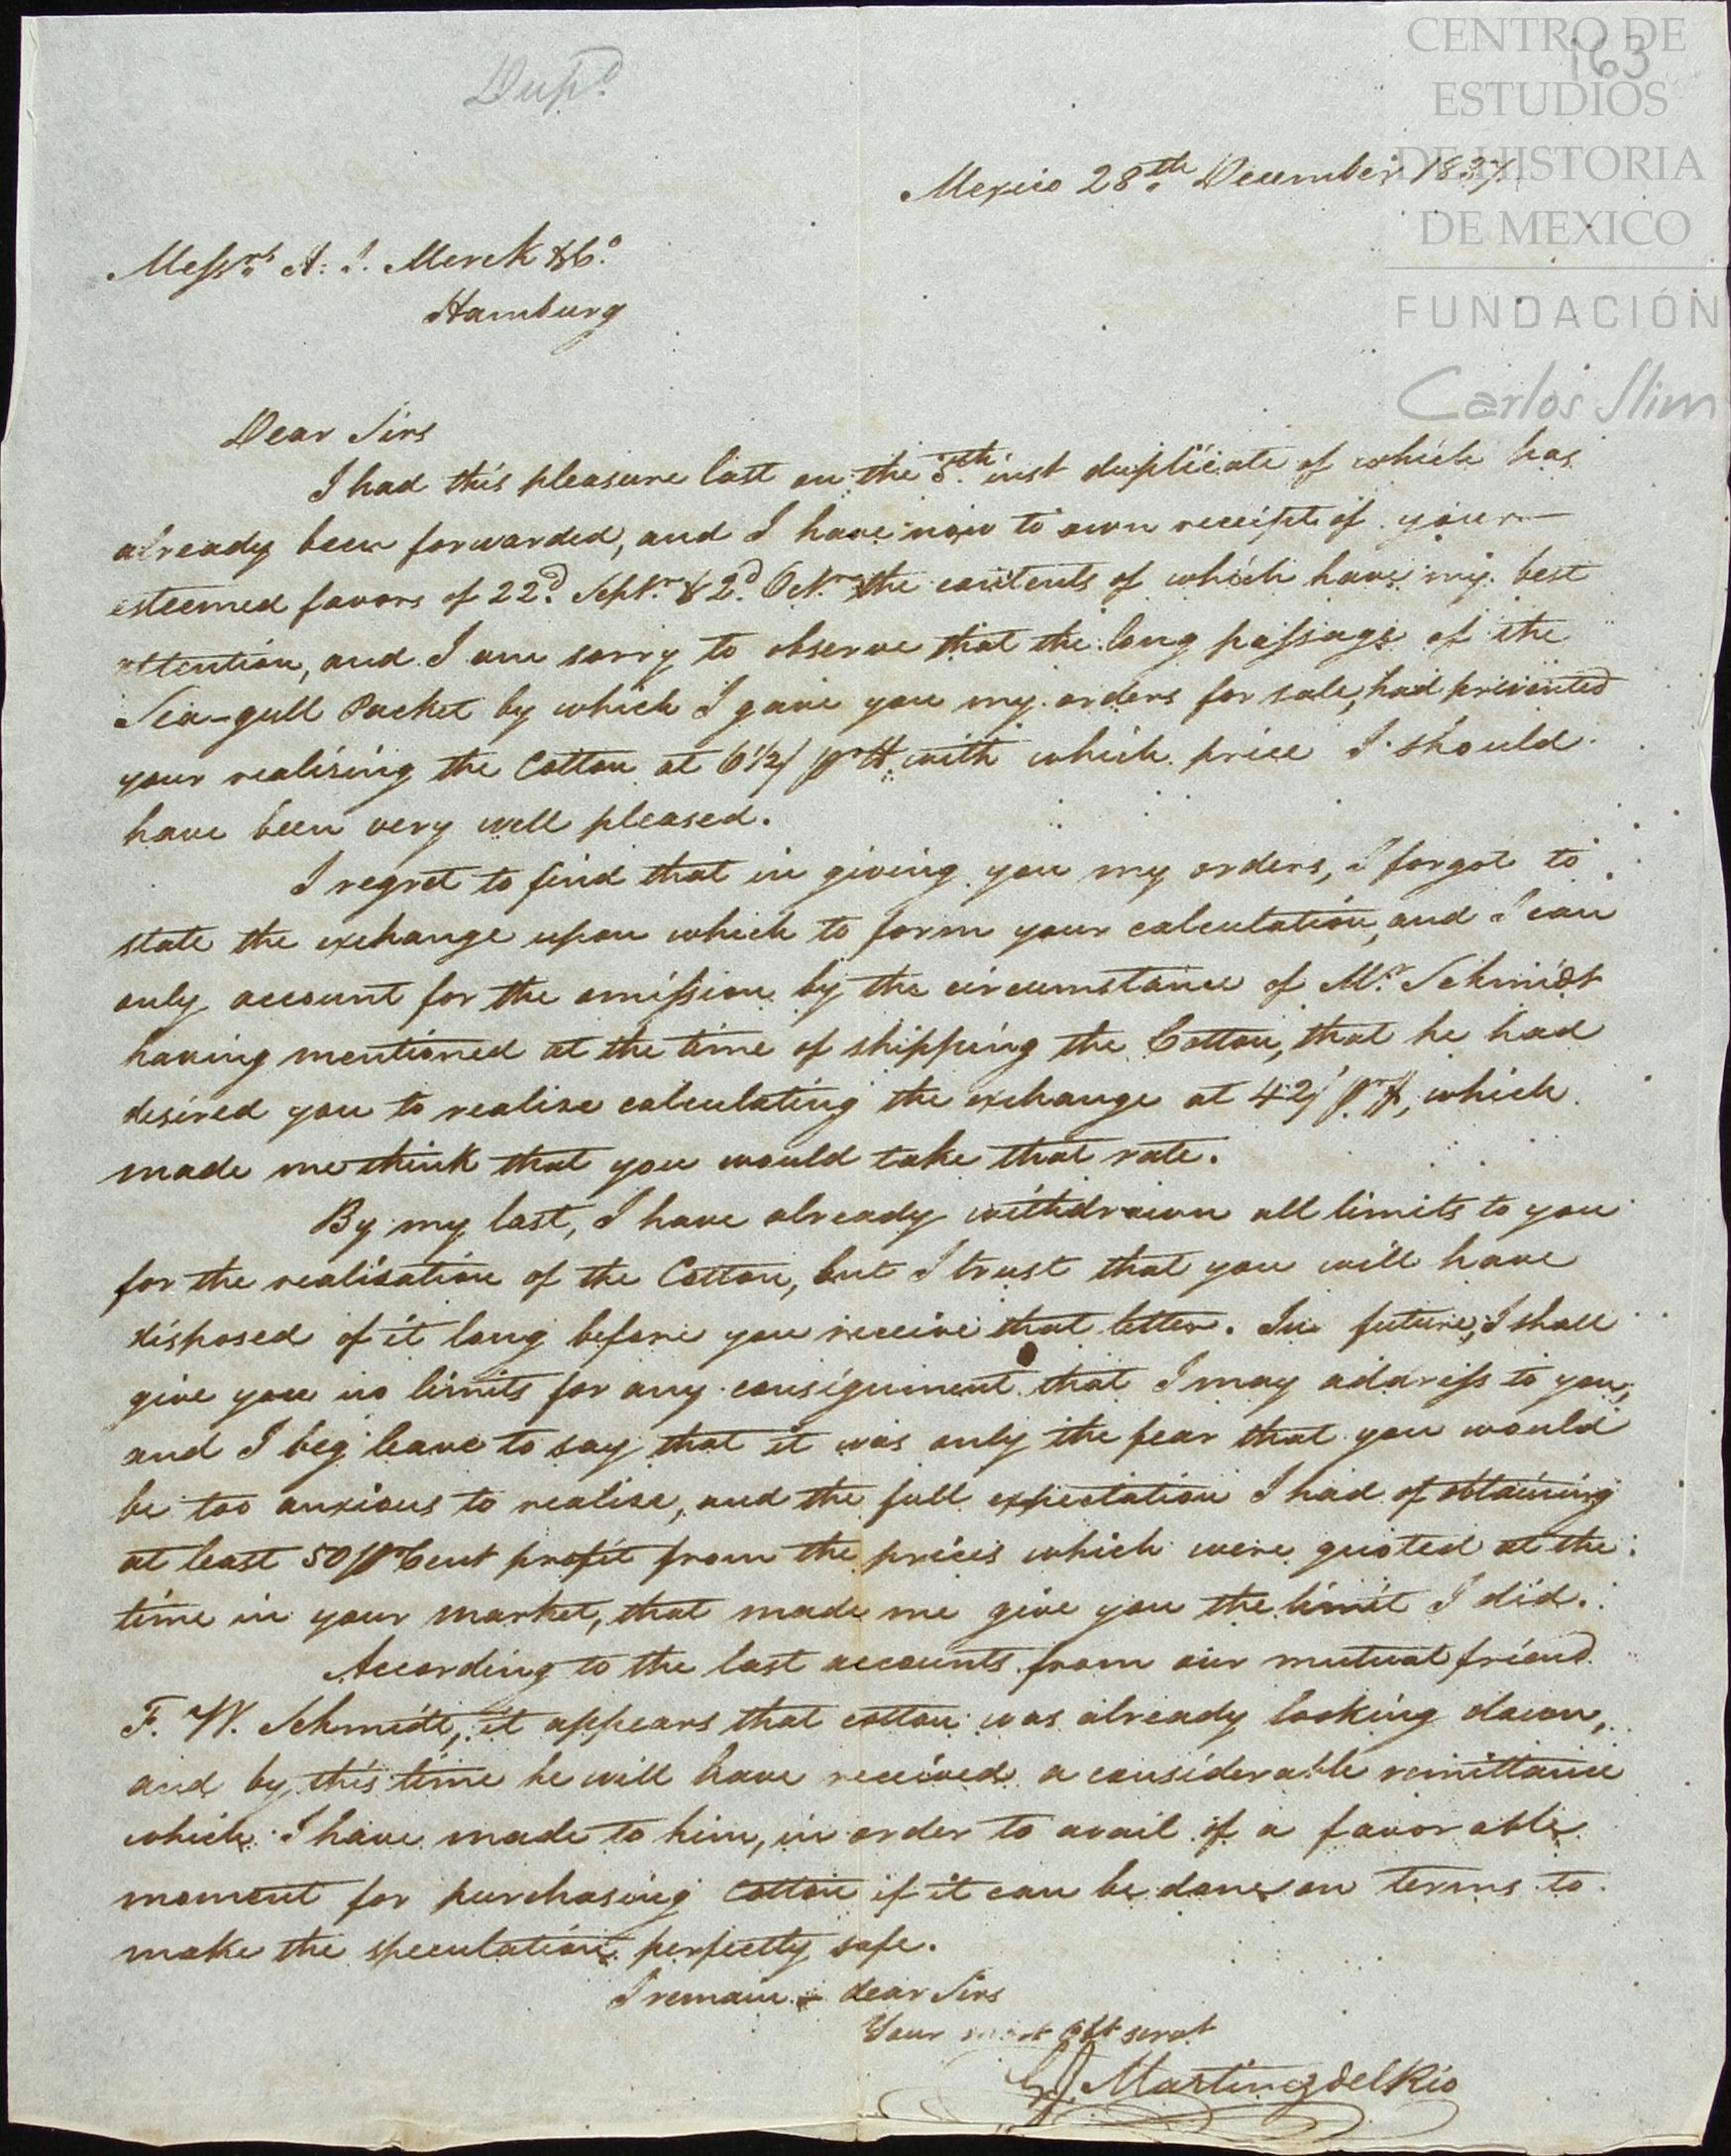 Dup.d
163
CENTRO DE
ESTUDIOS
DE HISTORIA
DE MEXICO
FUNDACIÓN
Carlos Slim
Mexico 28th December 1837.
Messrs A. J. Merck & Co.
Hamburg
Dear Sirs
I had this pleasure last on the inst duplicate of which has
already been forwarded, and I have now to own receipt of your
esteemed favors of 22d. Septr. & 2d. Octr. the contents of which have my best
attention, and I am sorry to observe that the long passage of the
Sea-gull Packet by which I gave you my orders for sale, had prevented
your realising the Cotton at 6½/ pr ℔. with which price I should
have been very well pleased.
I regret to find that in giving you my orders, I forgot to
state the exchange upon which to form your calculation, and I can
only account for the omission by the circumstance of Mr. Schmidt
having mentioned at the time of shipping the Cotton, that he had
desired you to realise calculating the exchange at 42/ pr $, which
made me think that you would take that rate.
By my last, I have already withdrawn all limits to you
for the realisation of the Cotton, but I trust that you will have
disposed of it long before you receive that letter. In future, I shall
give you no limits for any consignment that I may address to you,
and I beg leave to say that it was only the fear that you would
be too anxious to realise, and the full expectation I had of obtaining
at least 50 pr Cent profit from the prices which were quoted at the
time in your market, that made me give you the limit I did.
According to the last accounts from our mutual friend
F. W. Schmidt, it appears that cotton was already looking down,
and by this time he will have received a considerable remittance
which I have made to him, in order to avail of a favorable
moment for purchasing Cotton if it can be done on terms to
make the speculation perfectly safe.
I remain dear Sirs
Your most obt servt
Martinez del Rio